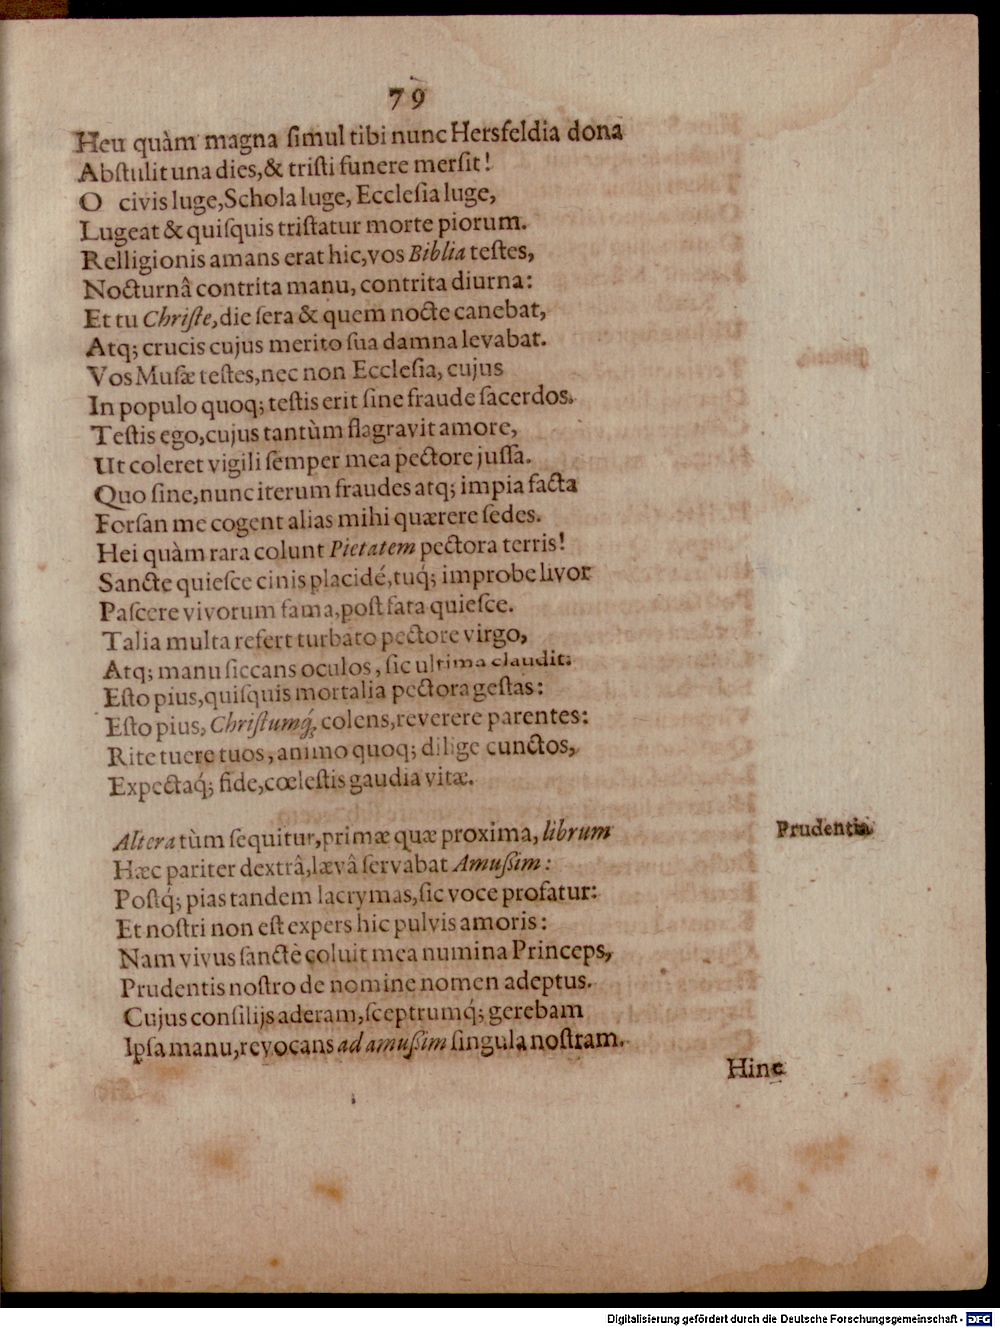 79
Heu quàm magna ſimul tibi nunc Hersfeldia dona
Abſtulit una dies, & triſti funere merſit!
O civis luge, Schola luge, Eccleſia luge,
Lugeat & quiſquis triſtatur morte piorum.
Relligionis amans erat hic, vos Biblia teſtes,
Nocturnâ contrita manu, contrita diurna:
Et tu Chriſte, die ſera & quem nocte canebat,
Atq; crucis cujus merito ſua damna levabat.
Vos Muſæ teſtes, nec non Eccleſia, cujus
In populo quoq; teſtis erit ſine fraude ſacerdos.
Teſtis ego, cujus tantùm flagravit amore,
Ut coleret vigili ſemper mea pectore juſſa.
Quo ſine, nunc iterum fraudes atq; impia facta
Forſan me cogent alias mihi quærere ſedes.
Hei quàm rara colunt Pietatem pectora terris!
Sancte quieſce cinis placidé, tuq́; improbe livor
Paſcere vivorum fama, poſt fata quieſce.
Talia multa refert turbato pectore virgo,
Atq; manu ſiccans oculos, ſic ultima claudit:
Eſto pius, quiſquis mortalia pectora geſtas:
Eſto pius, Chriſtumq́; colens, reverere parentes:
Rite tuere tuos, animo quoq; dilige cunctos,
Expectaq́; fide, cœleſtis gaudia vitæ.
Altera tùm ſequitur, primæ quæ proxima, librum
Prudentia
Hæc pariter dextrâ, lævâ ſervabat Amuſſim:
Poſtq́; pias tandem lacrymas, ſic voce profatur:
Et noſtri non eſt expers hic pulvis amoris:
Nam vivus ſanctè coluit mea numina Princeps,
Prudentis noſtro de nomine nomen adeptus.
Cujus conſilijs aderam, ſceptrumq́; gerebam
Ipſa manu, revocans ad amuſſim ſingula noſtram.
Hinc
Digitalisierung gefördert durch die Deutsche Forschungsgemeinschaft - DFG